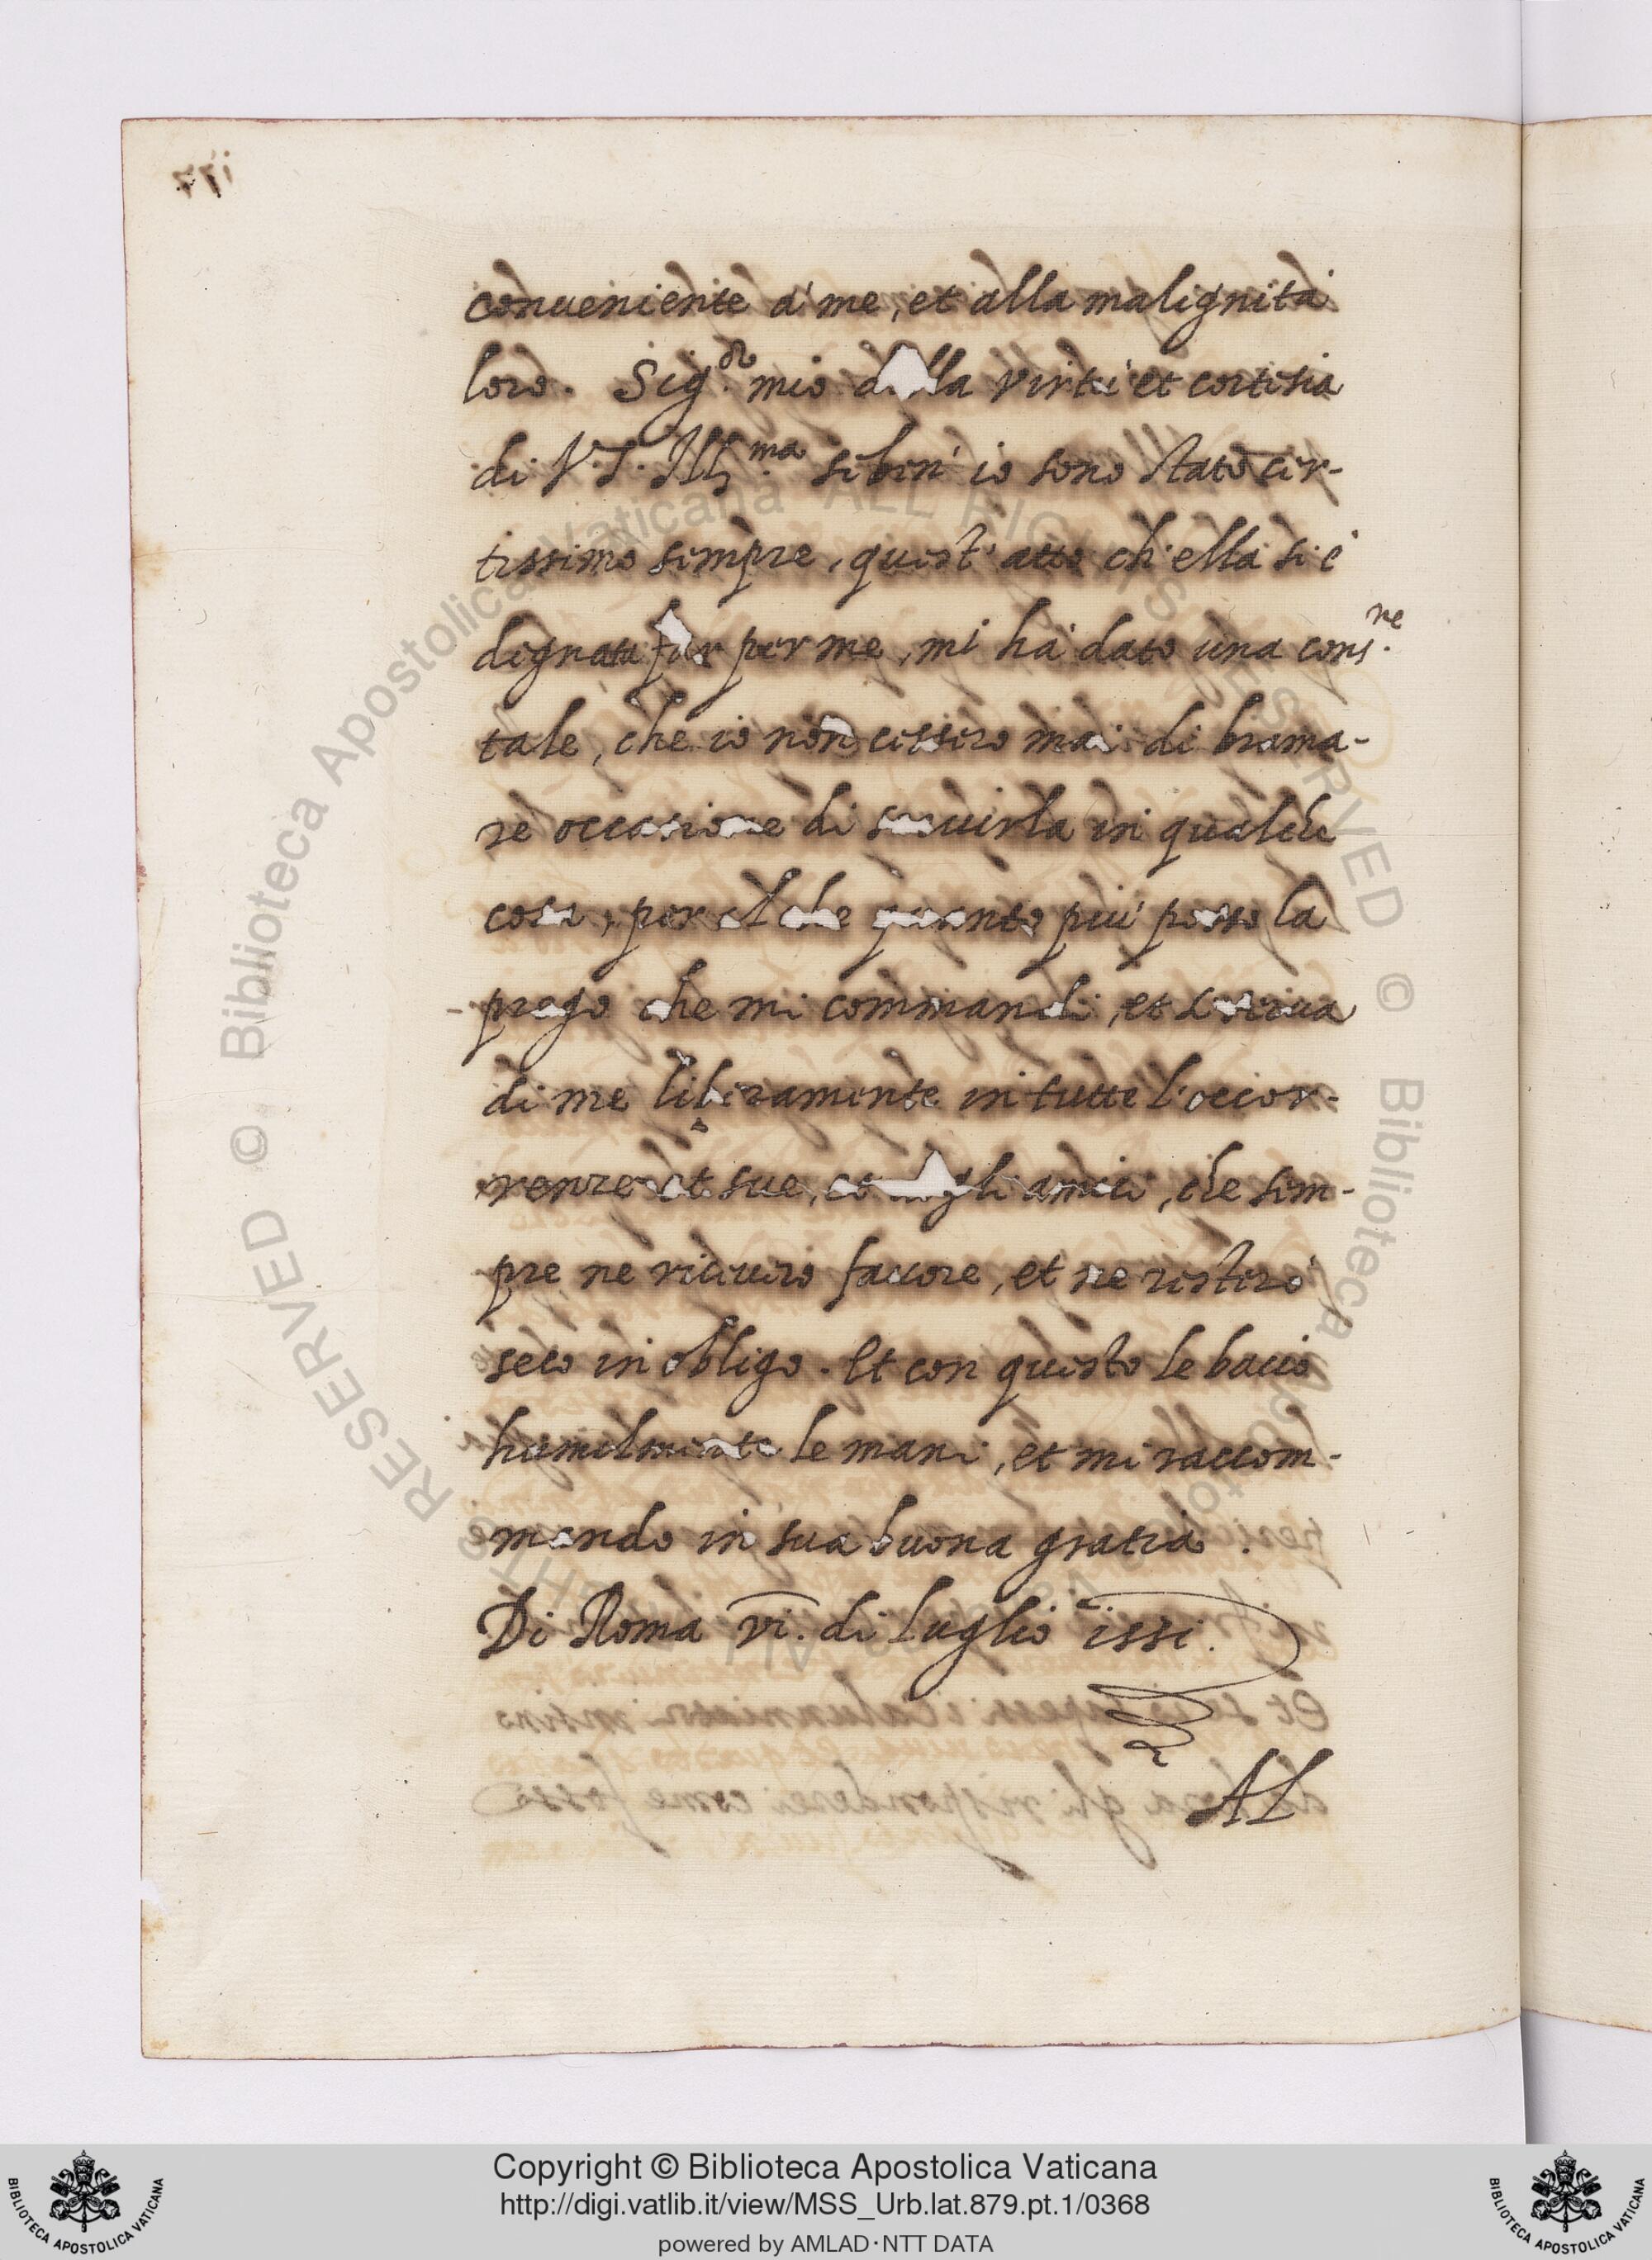 conueniente à me, et alla malignità
loro. Sig.or mio della virtù et cortesia
di V.S. Ill.ma seben' io sono stato cer-
tissimo sempre, quest' atto ch' ella si è
degnata far per me, mi hà dato una cons.ne
tale, che io non cesserò mai di brama-
re occasione di servirla in qualche
cosa, per il che quanto più posso la
prego che mi commandi, et si serva
di me liberamente in tutte l'occor-
renze et sue, gli amici, che sem-
pre ne riceverò favore, et ne resterò
seco in obligo. Et con questo le bacio
humilmente le mani, et mi raccom-
mando in sua buona gratia.
Di Roma vi. di Luglio 1551.
AL
177
© Biblioteca Apostolica Vaticana ALL RIGHTS RESERVED © Biblioteca Apostolica Vaticana ALL RIGHTS RESERVED
Copyright © Biblioteca Apostolica Vaticana
http://digi.vatlib.it/view/MSS_Urb.lat.879.pt.1/0368
powered by AMLAD·NTT DATA
BIBLIOTECA APOSTOLICA VATICANA
BIBLIOTECA APOSTOLICA VATICANA